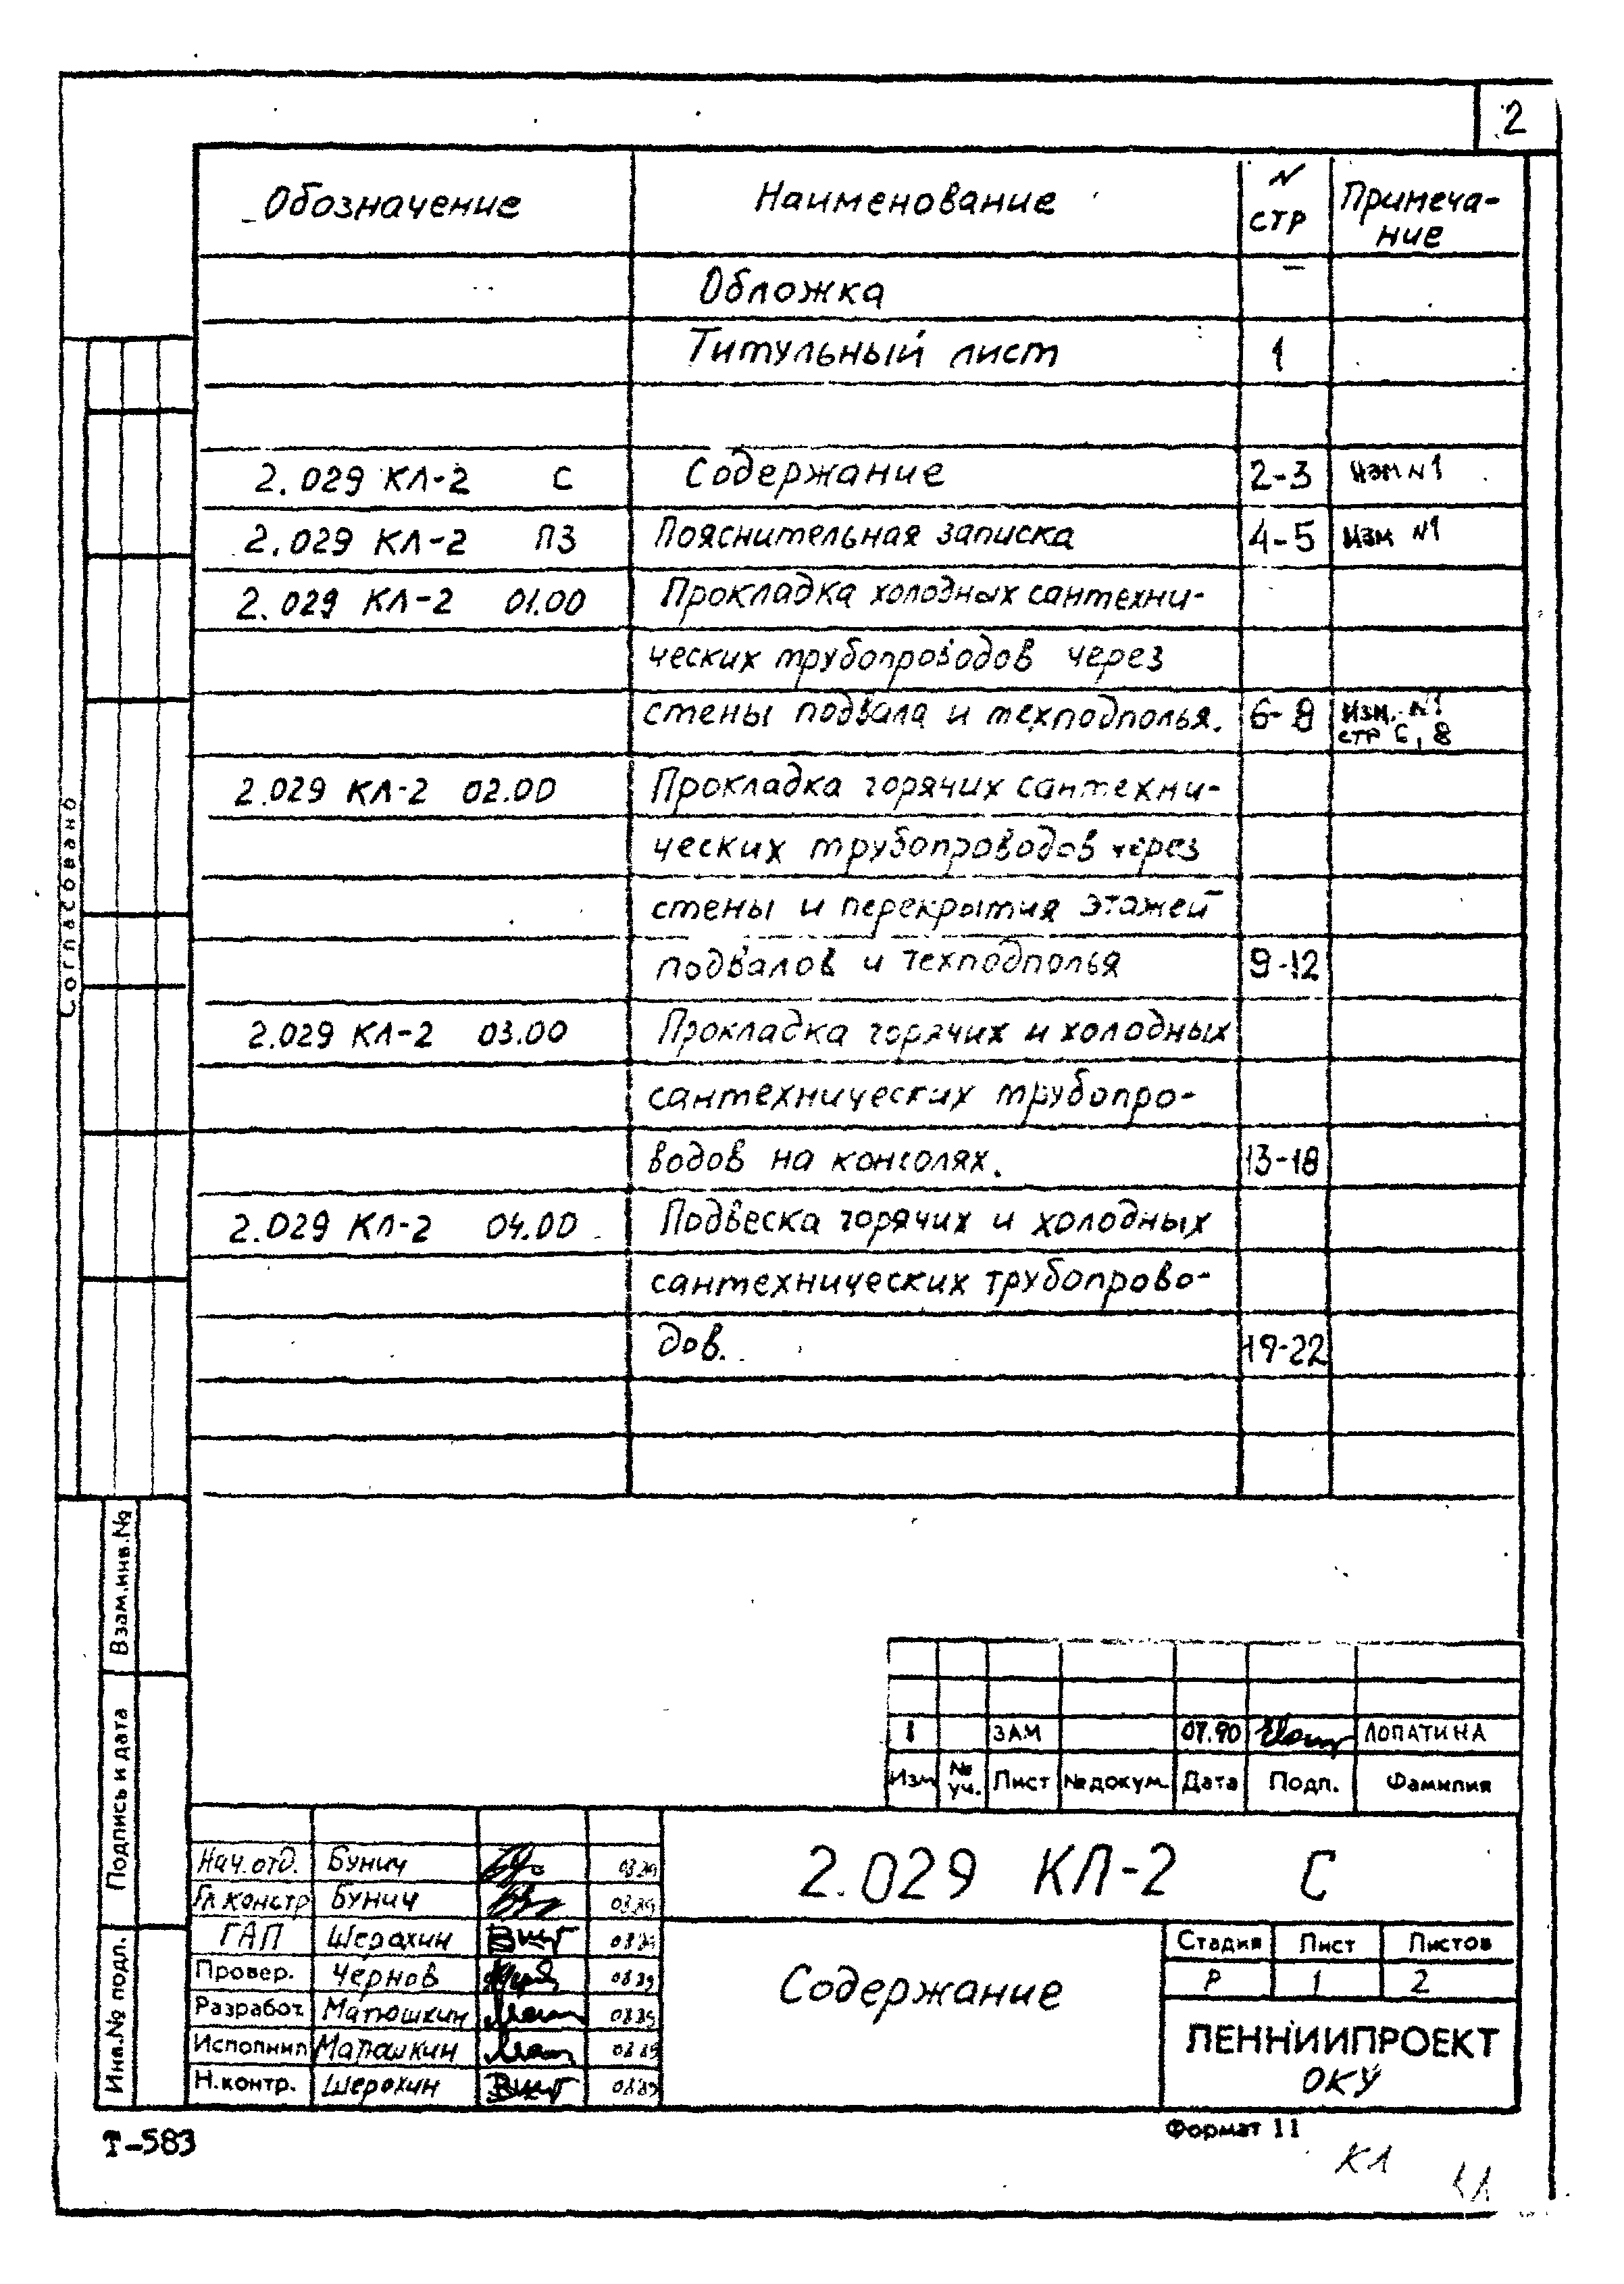 2
Обозначение Наименование N стр Примеча-
ние
Обложка –
Титульный лист 1
2.029 КЛ-2 С Содержание 2-3 Изм N1
2.029 КЛ-2 ПЗ Пояснительная записка 4-5 Изм N1
2.029 КЛ-2 01.00 Прокладка холодных сантехни-
ческих трубопроводов через
стены подвала и техподполья. 6-8 Изм. N1
стр 6, 8
2.029 КЛ-2 02.00 Прокладка горячих сантехни-
ческих трубопроводов через
стены и перекрытия этажей
подвалов и техподполья 9-12
2.029 КЛ-2 03.00 Прокладка горячих и холодных
сантехнических трубопро-
водов на консолях. 13-18
2.029 КЛ-2 04.00 Подвеска горячих и холодных
сантехнических трубопрово-
дов. 19-22
Согласовано
Взам.инв.№
Подпись и дата
Инв.№ подл.
1 ЗАМ 07.90 ЛОПАТИНА
Изм № уч. Лист №докум. Дата Подп. Фамилия
Нач.отд. Бунич
Гл.констр Бунич
ГАП Шерахин
Провер. Чернов
Разработ. Матюшкин
Исполнил Матюшкин
Н.контр. Шерахин
2.029 КЛ-2 С
Содержание
Стадия Лист Листов
Р 1 2
ЛЕННИИПРОЕКТ
ОКУ
Т-583
Формат 11
КЛ